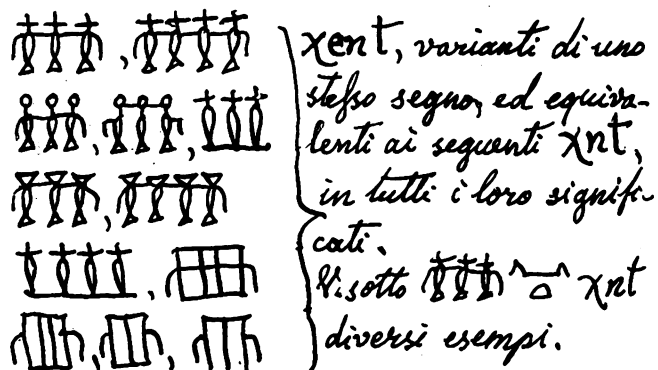 χent, varianti di uno
stesso segno, ed equiva-
lenti ai seguenti χnt,
in tutti i loro signifi-
cati.
V. sotto χnt
diversi esempi.